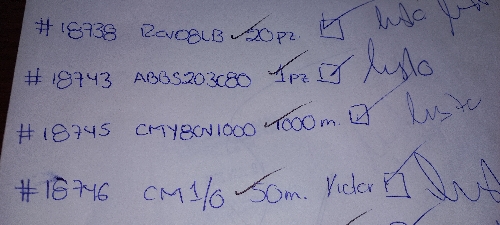 #18738 RCV08LB 20pz. lista
#18743 ABBS203C80 1pz listo
#18745 CMY80V1000 1000m. listo
#18746 CM1/0 50m. Victor